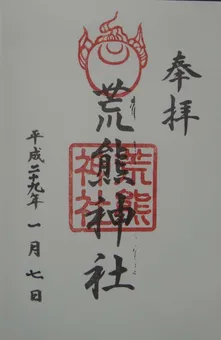 奉拝
荒熊神社
荒熊
神社
平成二十九年一月七日